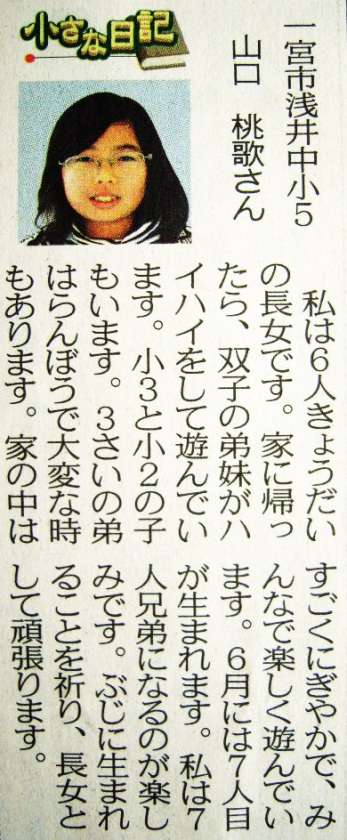 小さな日記
一宮市浅井中小5
山口　桃歌さん
私は6人きょうだい
の長女です。家に帰っ
たら、双子の弟妹がハ
イハイをして遊んでい
ます。小3と小2の子
もいます。3さいの弟
はらんぼうで大変な時
もあります。家の中は
すごくにぎやかで、み
んなで楽しく遊んでい
ます。6月には7人目
が生まれます。私は7
人兄弟になるのが楽し
みです。ぶじに生まれ
ることを祈り、長女と
して頑張ります。